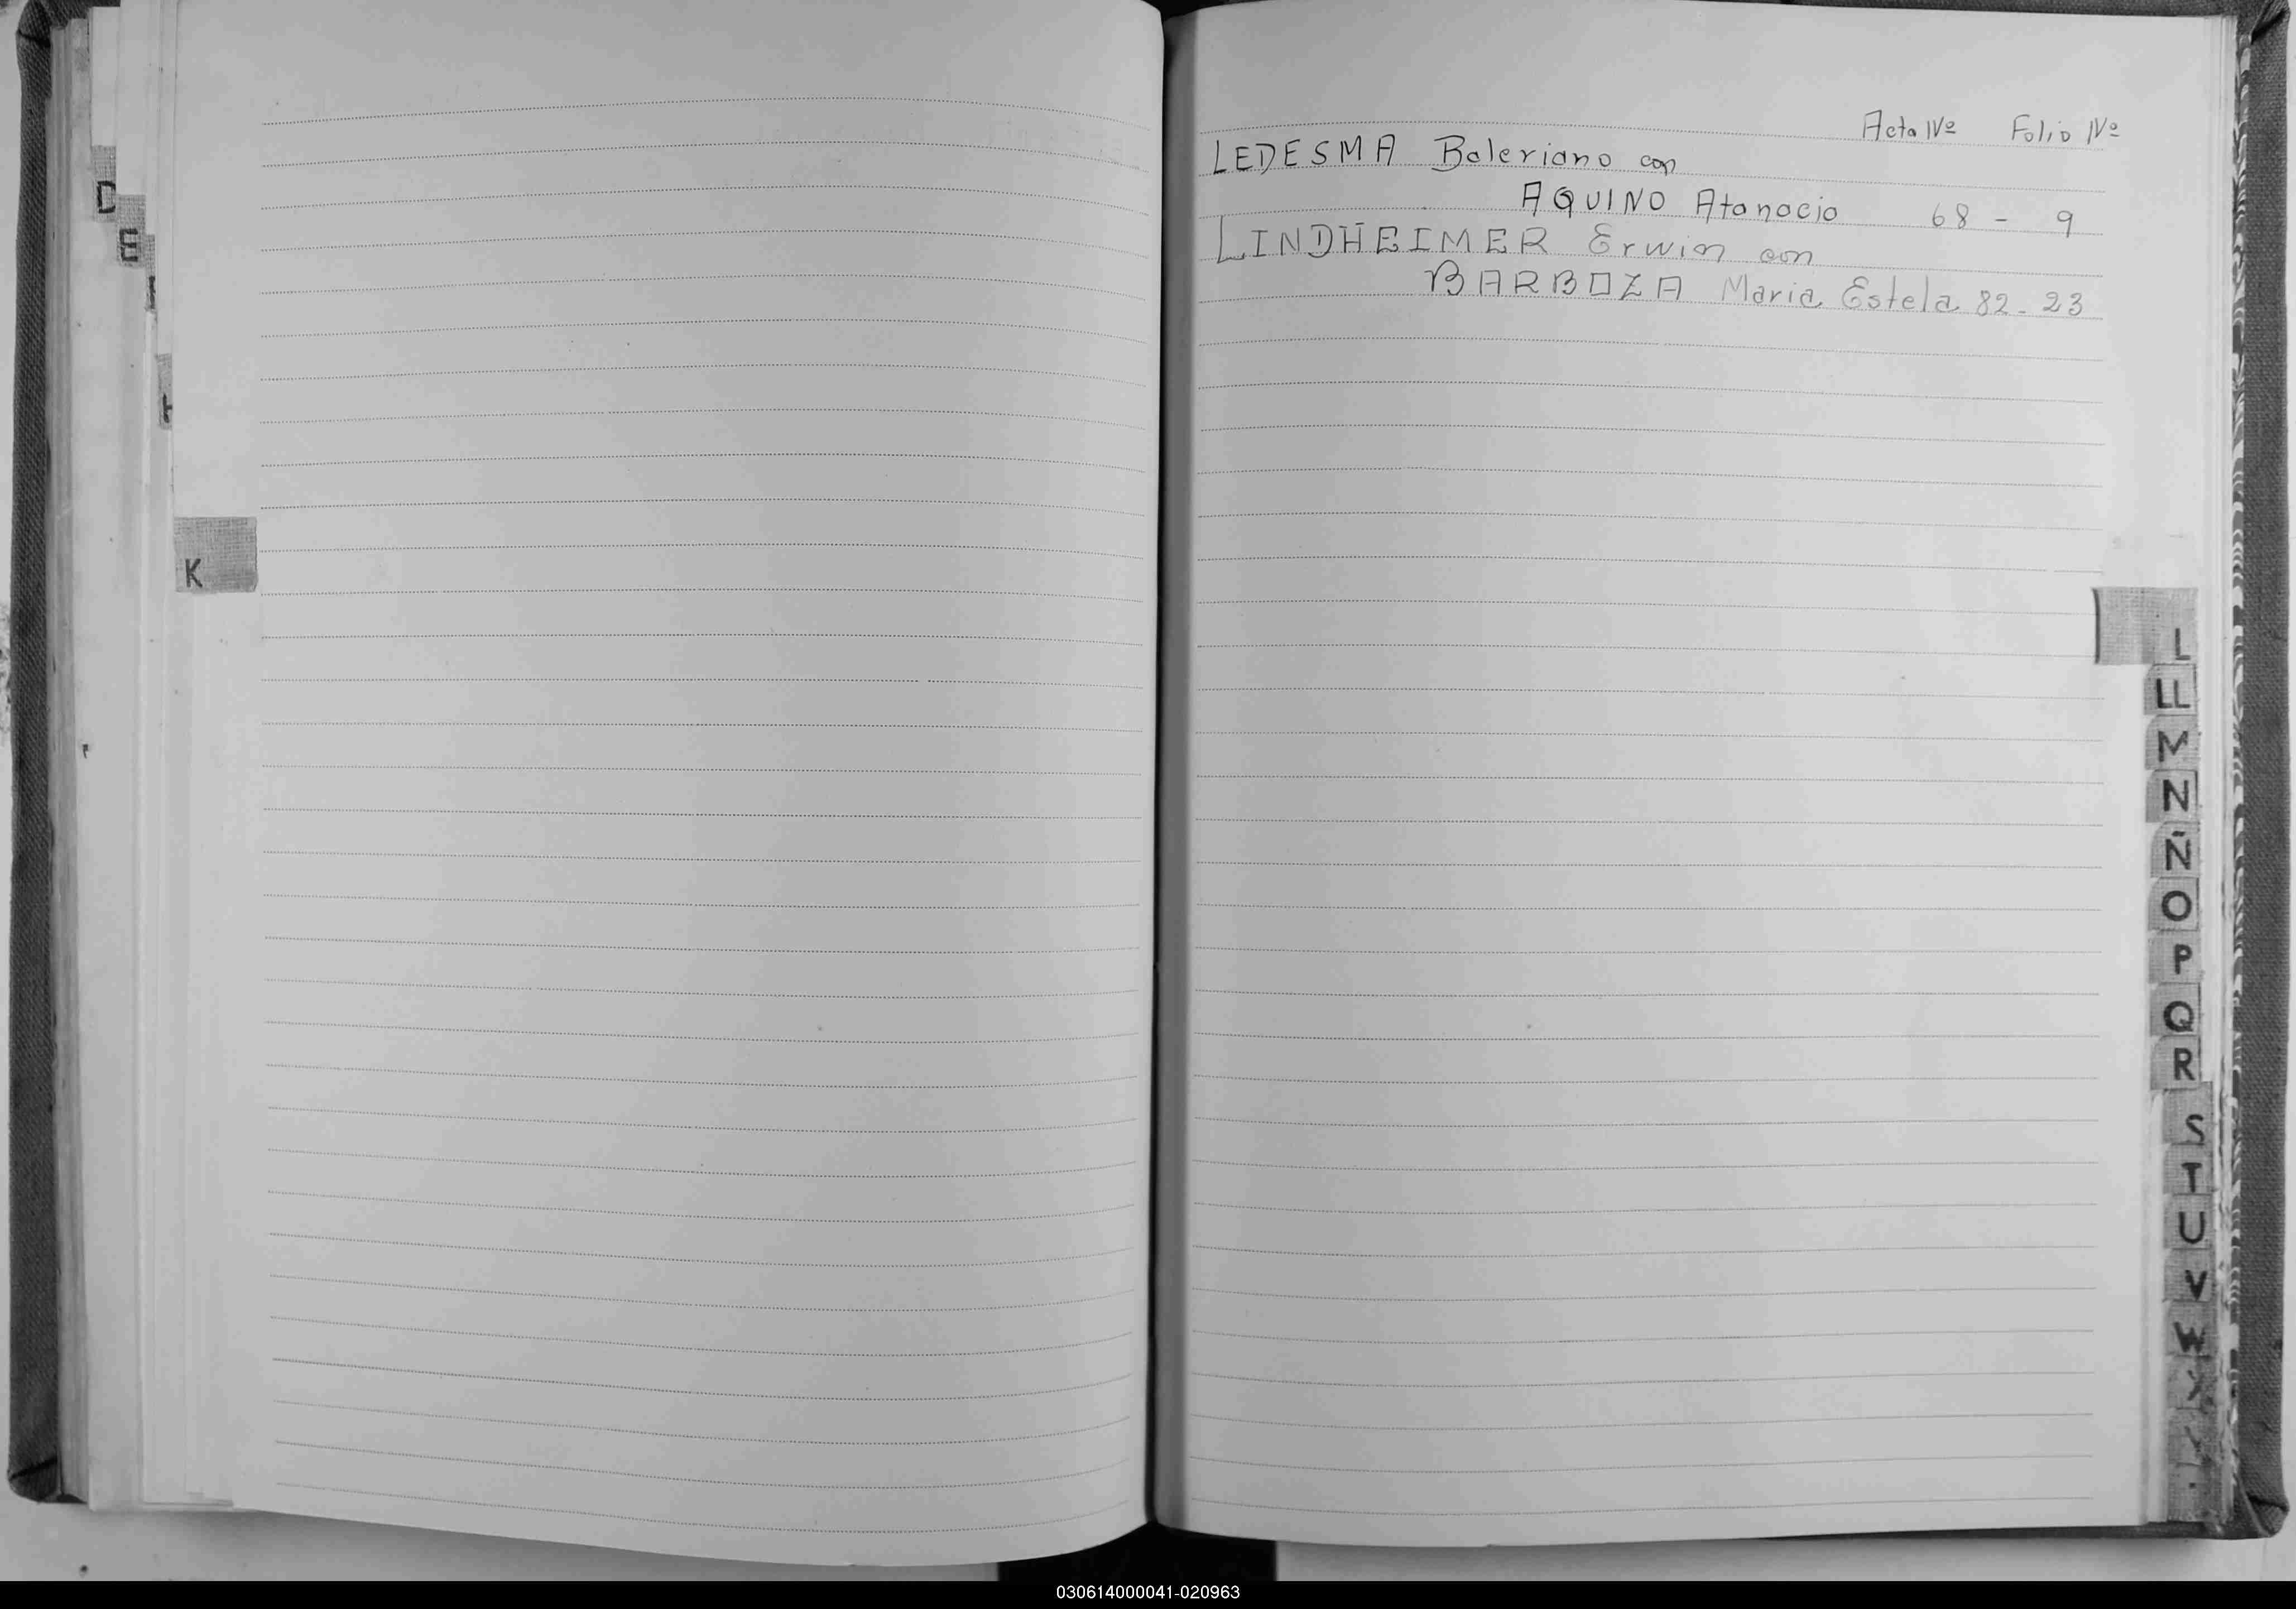 D
E
K
Acta Nº Folio Nº
LEDESMA Baleriano con
AQUINO Atanacio 68 - 9
LINDHEIMER Erwin con
BARBOZA Maria Estela 82 - 23
L
LL
M
N
Ñ
O
P
Q
R
S
T
U
V
W
X
030614000041-020963